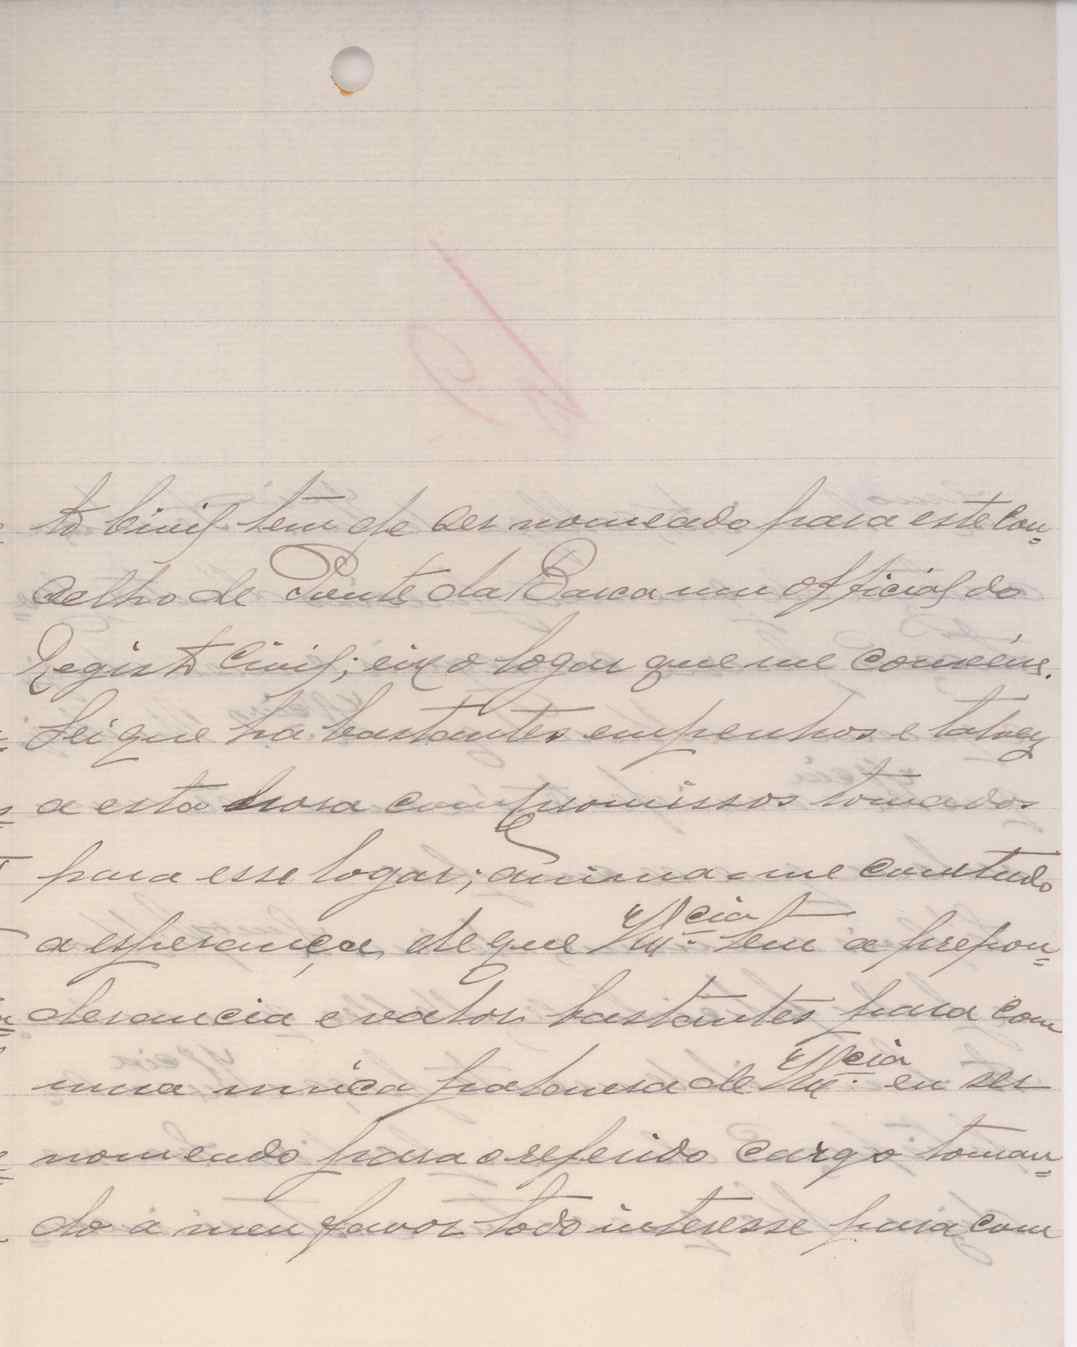 to Civil tem de ser nomeado para este con=
celho de Ponte da Barca um official do
Registo Civil; eis o logar que me convém.
Sei que ha bastantes empenhos e talvez
a esta hora compromissos tomados
para esse logar; anima-me comtudo
a esperança, de que V. Ex.cia tem a prepon=
derancia e valor bastantes para com
uma unica palavra de V. Ex.cia eu ser
nomeado para o referido cargo toman=
do a meu favor todo interesse para com